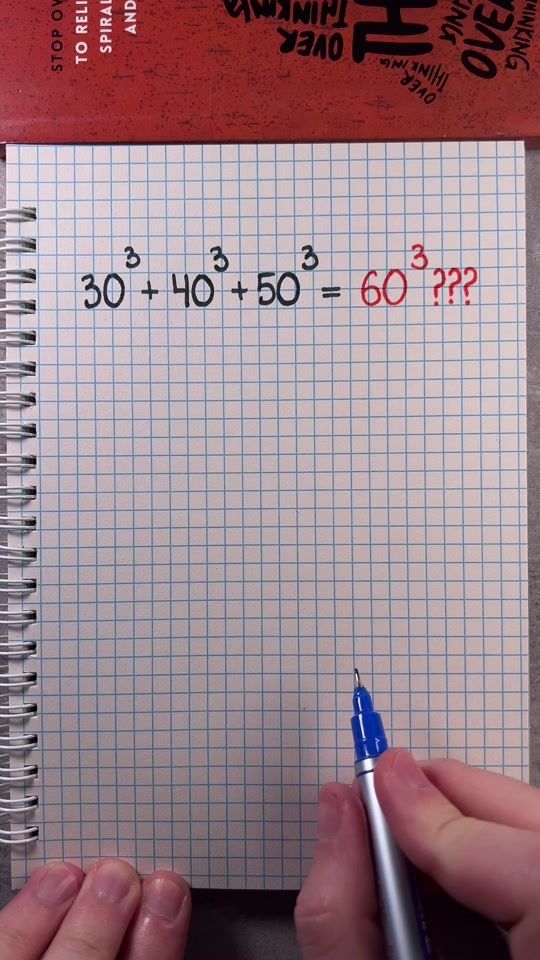 STOP OV
TO RELI
SPIRAL
AND
OVER
THINKING
OVER
THINKING
OVER
THINKING
30³ + 40³ + 50³ = 60³???